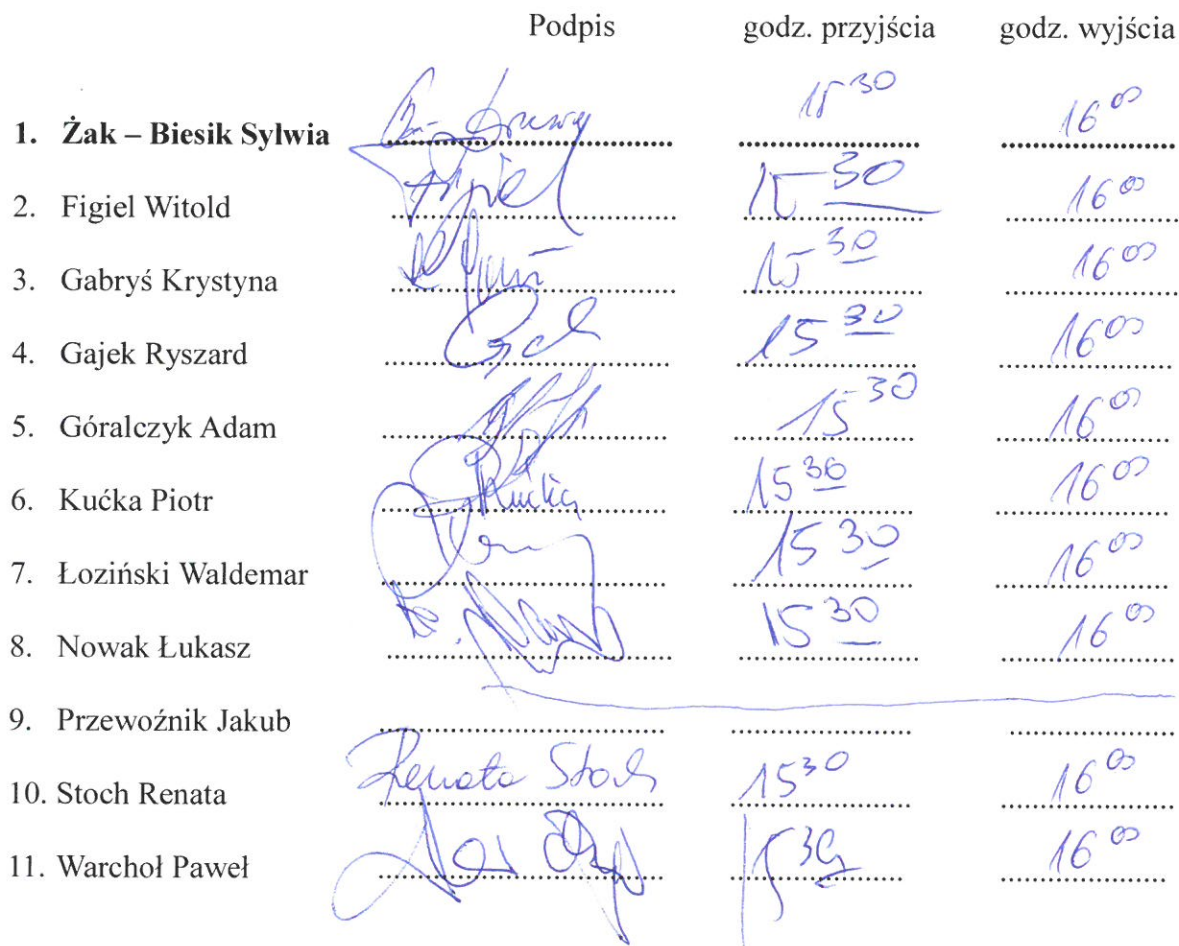 Podpis godz. przyjścia godz. wyjścia
1. Żak – Biesik Sylwia 15 30 16 00
2. Figiel Witold Figiel 15 30 16 00
3. Gabryś Krystyna 15 30 16 00
4. Gajek Ryszard 15 30 16 00
5. Góralczyk Adam 15 30 16 00
6. Kućka Piotr Kućka 15 30 16 00
7. Łoziński Waldemar 15 30 16 00
8. Nowak Łukasz 15 30 16 00
9. Przewoźnik Jakub
10. Stoch Renata Renata Stoch 15 30 16 00
11. Warchoł Paweł 15 30 16 00